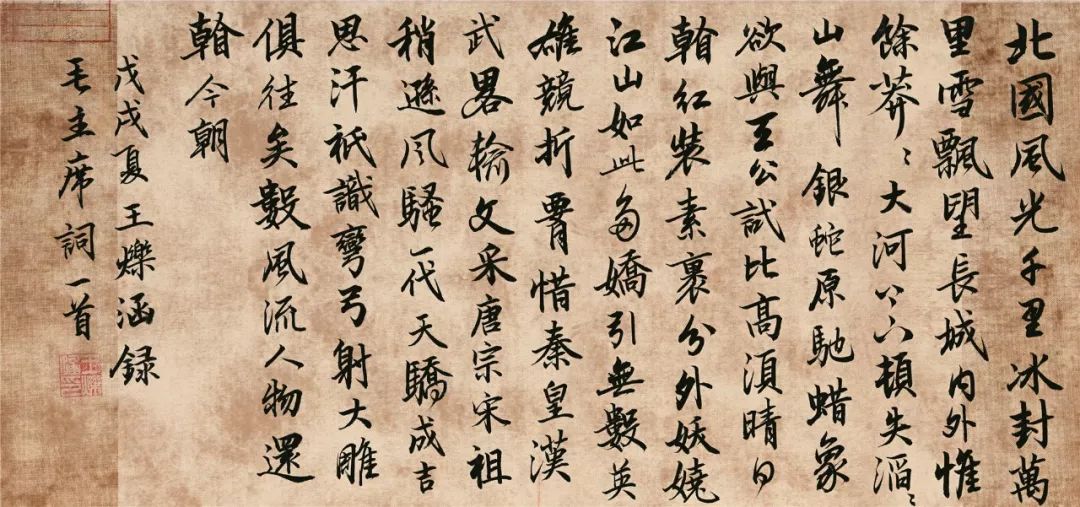 北國風光千里冰封萬
里雪飄望長城內外惟
餘莽〻大河上下頓失滔〻
山舞銀蛇原馳蜡象
欲與王公試比高須晴日
看紅裝素裹分外妖嬈
江山如此多嬌引無數英
雄競折腰惜秦皇漢
武畧輸文采唐宗宋祖
稍遜風騷一代天驕成吉
思汗祇識彎弓射大雕
俱往矣數風流人物還
看今朝
戊戌夏王爍涵録
毛主席詞一首